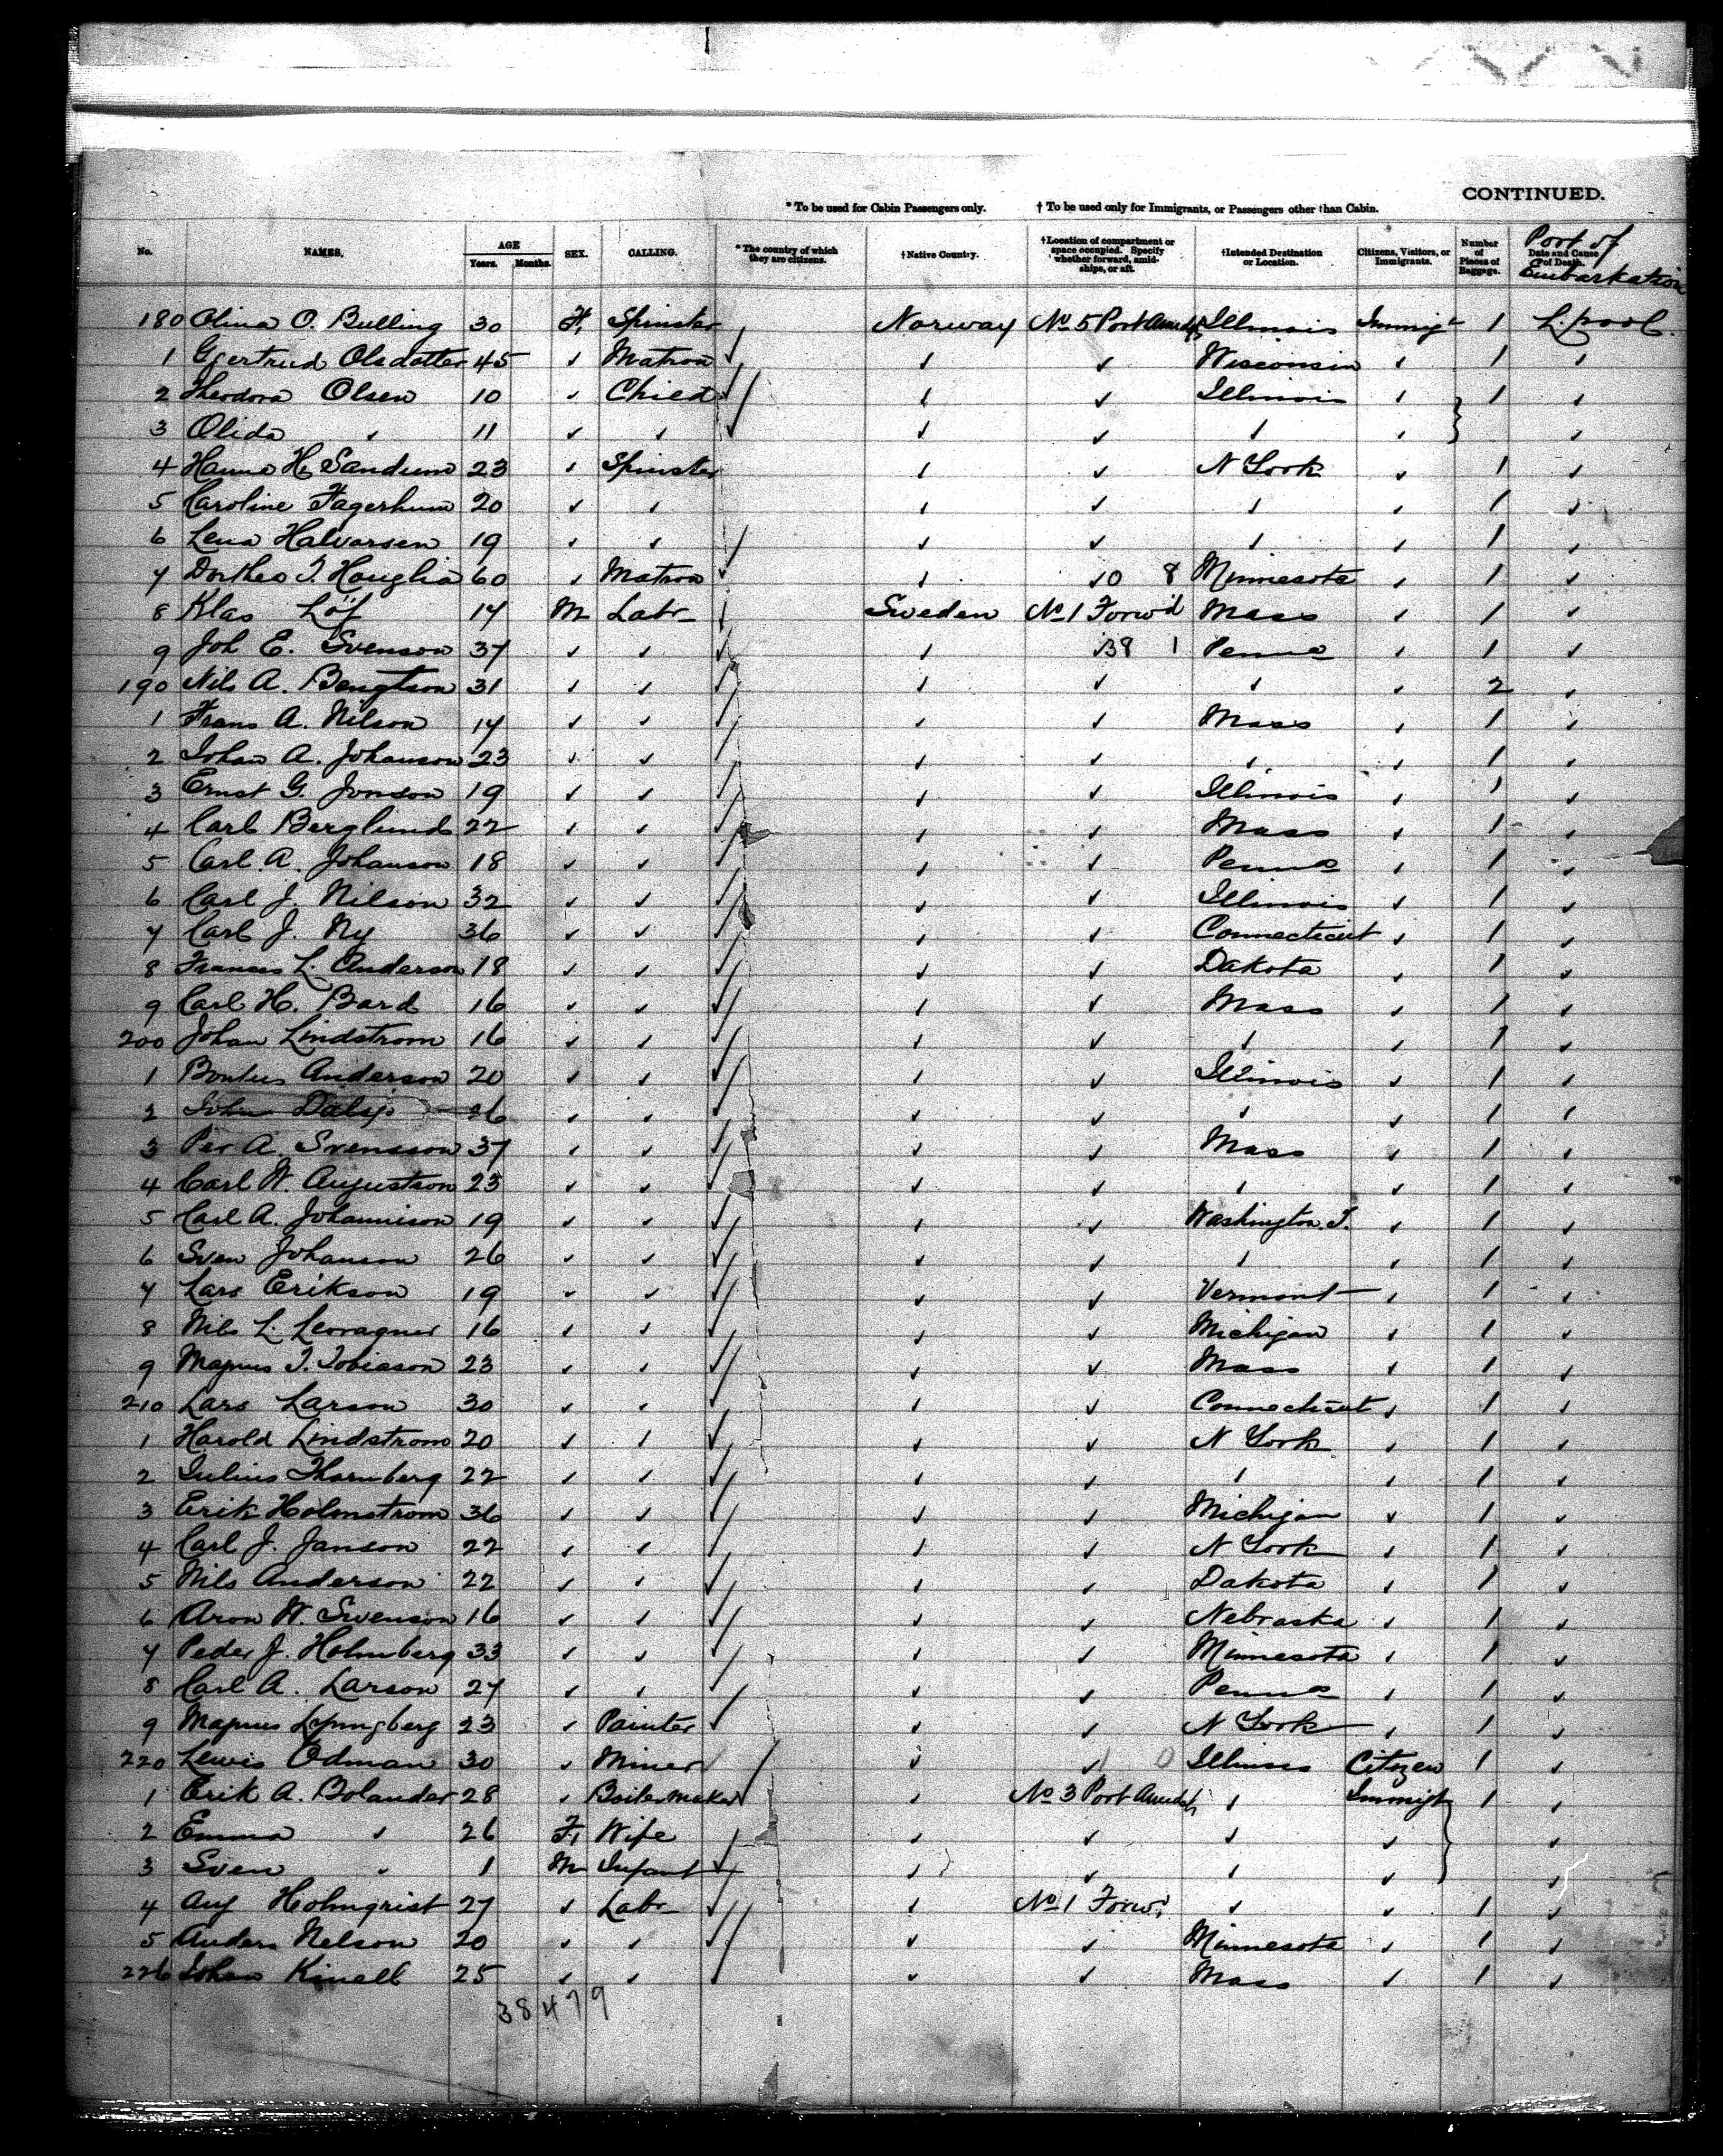 CONTINUED.
* To be used for Cabin Passengers only. † To be used only for Immigrants, or Passengers other than Cabin.
No. NAMES. AGE Years. Months. SEX. CALLING. * The country of which they are citizens. † Native Country. † Location of compartment or space occupied. Specify whether forward, amidships, or aft. † Intended Destination or Location. Citizens, Visitors, or Immigrants. Number of Pieces of Baggage. Date and Cause of Death. Port of Embarkation
180 Olina O. Bulling 30 F. Spinster Norway No 5 Port Amids Illinois Immigt 1 L.pool.
1 Ggertrud Olsdatter 45 ✓ Matron ✓ ✓ Wisconsin ✓ 1 ✓
2 Theodora Olsen 10 ✓ Child ✓ ✓ Illinois ✓ 1 ✓
3 Olida ✓ 11 ✓ ✓ ✓ ✓ ✓ ✓ ✓
4 Hanna H. Sandum 23 ✓ Spinster ✓ ✓ N York ✓ 1 ✓
5 Caroline Fagerhum 20 ✓ ✓ ✓ ✓ ✓ ✓ 1 ✓
6 Lena Halvarsen 19 ✓ ✓ ✓ ✓ ✓ ✓ 1 ✓
7 Dorthea T. Hauglia 60 ✓ Matron ✓ ✓ 10 8 Minnesota ✓ 1 ✓
8 Klas Löf 17 M Labr Sweden No 1 Forw'd Mass ✓ 1 ✓
9 Joh E. Svenson 37 ✓ ✓ ✓ ✓ 38 1 Penna ✓ 1 ✓
190 Nils A. Bengtson 31 ✓ ✓ ✓ ✓ ✓ ✓ 2 ✓
1 Frans A. Nilson 17 ✓ ✓ ✓ ✓ Mass ✓ 1 ✓
2 Johan A. Johanson 23 ✓ ✓ ✓ ✓ ✓ ✓ 1 ✓
3 Ernst G. Jonson 19 ✓ ✓ ✓ ✓ Illinois ✓ 1 ✓
4 Carl Berglund 22 ✓ ✓ ✓ ✓ Mass ✓ 1 ✓
5 Carl A. Johanson 18 ✓ ✓ ✓ ✓ Penna ✓ 1 ✓
6 Carl J. Nilson 32 ✓ ✓ ✓ ✓ Illinois ✓ 1 ✓
7 Carl J. Ny 36 ✓ ✓ ✓ ✓ Connecticut ✓ 1 ✓
8 Frances L. Anderson 18 ✓ ✓ ✓ ✓ Dakota ✓ 1 ✓
9 Carl H. Bard 16 ✓ ✓ ✓ ✓ Mass ✓ 1 ✓
200 Johan Lindstrom 16 ✓ ✓ ✓ ✓ ✓ ✓ 1 ✓
1 Bontus Anderson 20 ✓ ✓ ✓ ✓ Illinois ✓ 1 ✓
2 John 26 ✓ ✓ ✓ ✓ ✓ ✓ 1 ✓
3 Per A. Svensson 37 ✓ ✓ ✓ ✓ Mass ✓ 1 ✓
4 Carl W. Augustson 23 ✓ ✓ ✓ ✓ ✓ ✓ 1 ✓
5 Carl A. Johannison 19 ✓ ✓ ✓ ✓ Washington. T. ✓ 1 ✓
6 Sven Johanson 26 ✓ ✓ ✓ ✓ ✓ ✓ 1 ✓
7 Lars Erikson 19 ✓ ✓ ✓ ✓ Vermont ✓ 1 ✓
8 Nils L. 16 ✓ ✓ ✓ ✓ Michigan ✓ 1 ✓
9 Magnus T. Tobiason 23 ✓ ✓ ✓ ✓ Mass ✓ 1 ✓
210 Lars Larson 30 ✓ ✓ ✓ ✓ Connecticut ✓ 1 ✓
1 Harold Lindstrom 20 ✓ ✓ ✓ ✓ N York ✓ 1 ✓
2 Julius Thornberg 22 ✓ ✓ ✓ ✓ ✓ ✓ 1 ✓
3 Erik Holmstrom 36 ✓ ✓ ✓ ✓ Michigan ✓ 1 ✓
4 Carl J. Janson 22 ✓ ✓ ✓ ✓ N York ✓ 1 ✓
5 Nils Anderson 22 ✓ ✓ ✓ ✓ Dakota ✓ 1 ✓
6 Aron W. Swenson 16 ✓ ✓ ✓ ✓ Nebraska ✓ 1 ✓
7 Peder J. Holmberg 33 ✓ ✓ ✓ ✓ Minnesota ✓ 1 ✓
8 Carl A. Larson 27 ✓ ✓ ✓ ✓ Penna ✓ 1 ✓
9 Magnus Lynngberg 23 ✓ Painter ✓ ✓ N York ✓ 1 ✓
220 Lewis Odman 30 ✓ Miner ✓ ✓ Illinois Citizen 1 ✓
1 Erik A. Bolander 28 ✓ Boilermaker ✓ No 3 Port Amids ✓ Immigt 1 ✓
2 Emma ✓ 26 F. Wife ✓ ✓ ✓ ✓ ✓
3 Sven ✓ 1 M Infant ✓ ✓ ✓ ✓ ✓
4 Aug Holmqrist 27 ✓ Labr ✓ No 1 Forw. ✓ ✓ 1 ✓
5 Anders Nelson 20 ✓ ✓ ✓ ✓ Minnesota ✓ 1 ✓
226 Johan Kinell 25 ✓ ✓ ✓ ✓ Mass ✓ 1 ✓
38479